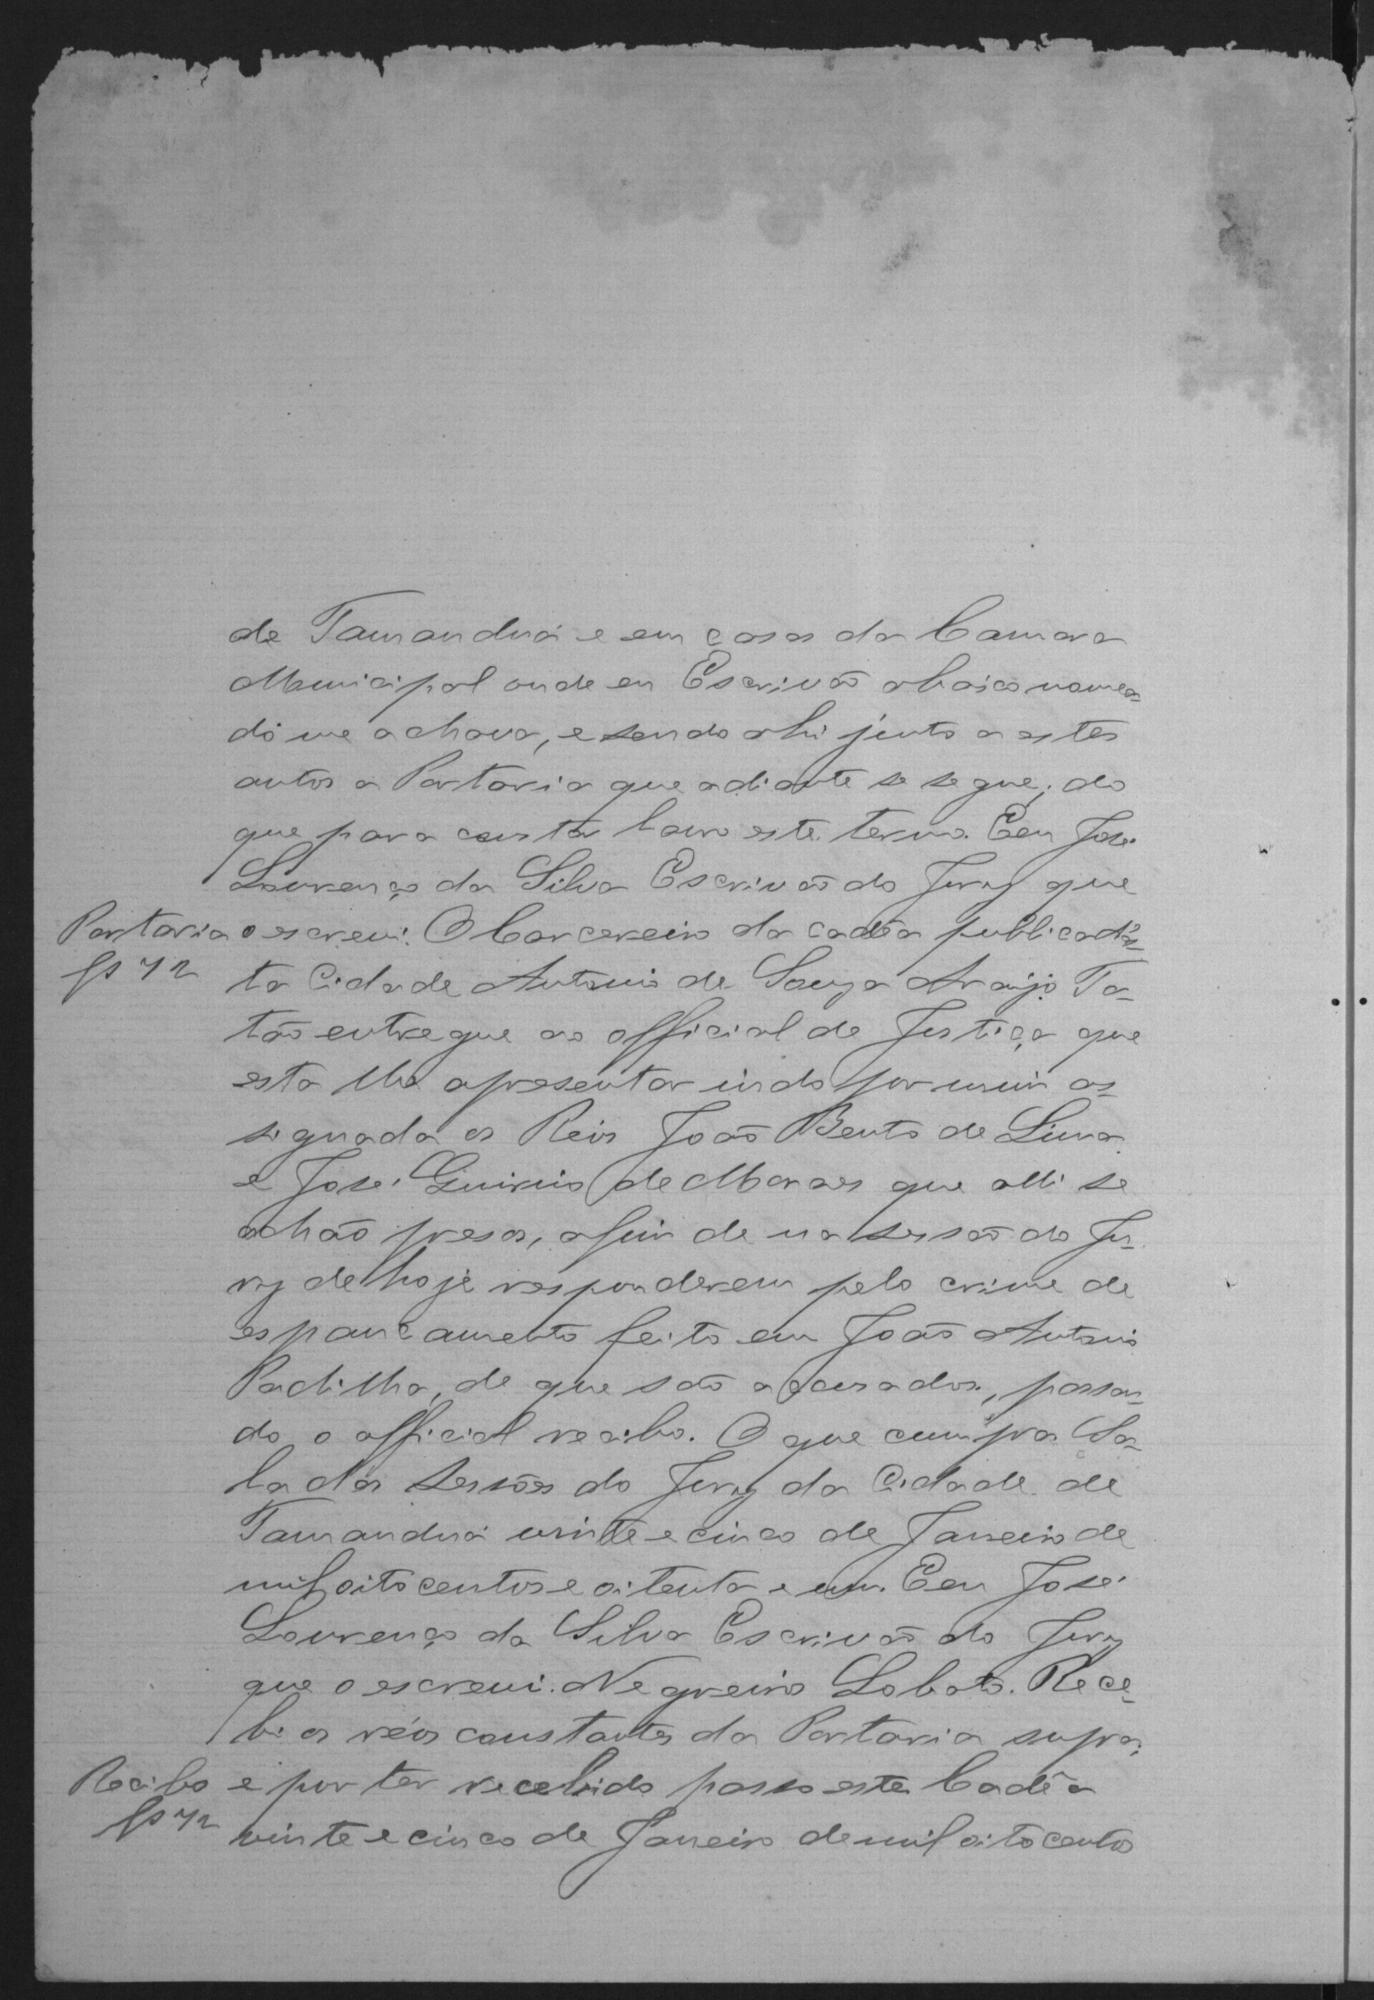 de Tamanduá e em casas da Camara
Municipal onde eu Escrivão abaico nomea-
do me achava, e sendo ahi junto a estes
autos a Portaria que adiante se segue; do
que para constar lavro este termo. Eeu José
Lourenço da Silva Escrivão do Jury que
Portaria o escrevi. O Carcereiro da cadêa publica d'es-
fs 72 ta Cidade Antonio de Souza Araujo Ta-
tão entregue ao official de Justiça que
esta lhe apresentar indo por mim as-
signada os Reis João Bento de Lima
e José de Moraes que alli se
achão presos, afim de na sessão do Ju-
ry de hoje responderem pelo crime de
espancamento feito em João Antonio
Padilha, de que são accusados, passan-
do o official recibo. O que cumpra. Sa-
la das Sessões do Jury da Cidade de
Tamanduá vinte e cinco de Janeiro de
mil oito centos e oitenta e um. Eeu José
Lourenço da Silva Escrivão do Jury
que o escrevi. Negreiros Lobato. Rece-
bi os réos constantes da Portaria supra,
Recibo e por ter recebido passo este. Cadêa
fs 72 vinte e cinco de Janeiro de mil oito centos